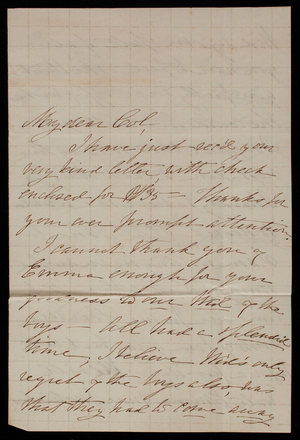 My dear Col,
I have just rec'd your
very kind letter with check
enclosed for $35 = Thanks for
your ever prompt attention.
I cannot thank you &
Emma enough for your
kindness to our & the
boys — all had a splendid
time, I believe only
regret & the boys also, was
that they had to come away